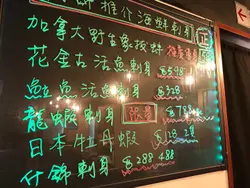 師推介海鮮刺身 正
加拿大野生象拔蚌
花金古活魚刺身 $598
魚活魚刺身 $328
龍蝦刺身 $788
日本牡丹蝦 $128 2隻
什錦刺身 $288 488